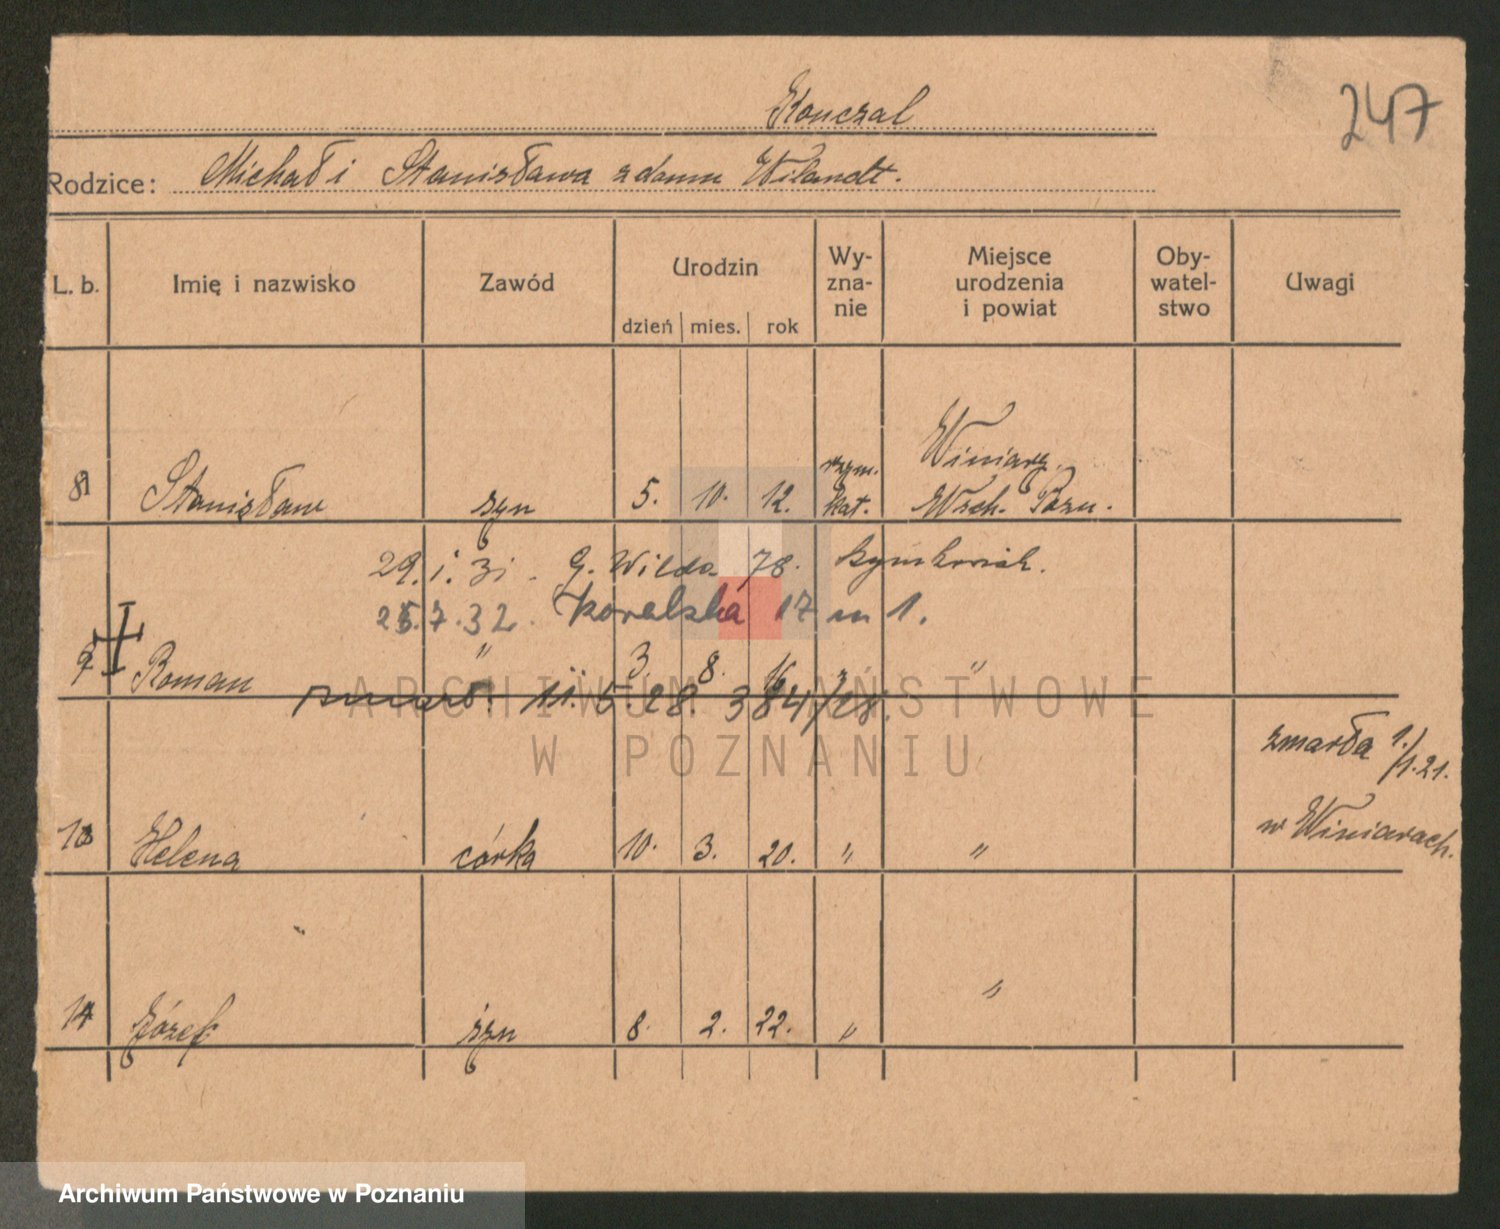 Konczal
247
Rodzice: Michał i Stanisława z domu Wilandt.
L. b. Imię i nazwisko Zawód Urodzin dzień mies. rok Wy-zna-nie Miejsce urodzenia i powiat Oby-watel-stwo Uwagi
Winiary
8 Stanisław syn 5. 10. 12. rzym. kat. Wsch. Pozn.
29. 1. 31. G. Wilda 78. Szymkowiak.
25.7.32. Koralska 17 m 1.
9 Roman " 3. 8. 16. " "
zmarł 11. 5. 28. 384/28.
zmarła 1./1. 21.
w Winiarach.
10 Helena córka 10. 3. 20. " "
11 Józef syn 8. 2. 22. " "
ARCHIWUM PAŃSTWOWE
W POZNANIU
Archiwum Państwowe w Poznaniu